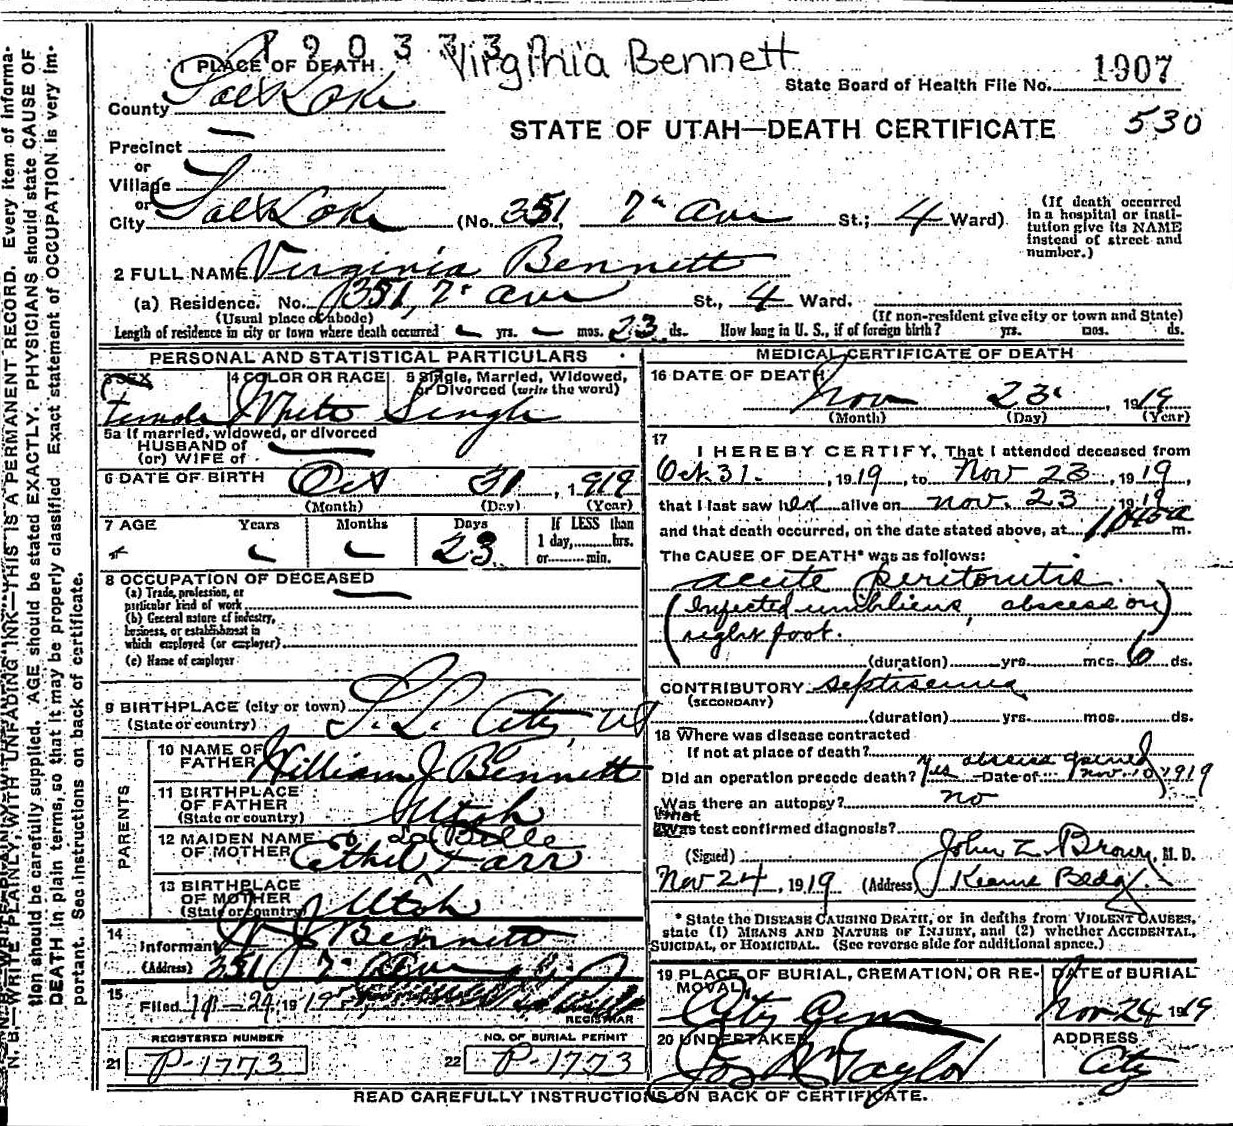 190333 Virginia Bennett
PLACE OF DEATH
State Board of Health File No. 1907
County Salt Lake
STATE OF UTAH—DEATH CERTIFICATE 530
Precinct
or
Village
or
City Salt Lake (No. 351, 7th Ave St.; 4 Ward)
(If death occurred
in a hospital or insti-
tution give its NAME
instead of street and
number.)
2 FULL NAME Virginia Bennett
(a) Residence. No. 351, 7th Ave St., 4 Ward.
(Usual place of abode) (If non-resident give city or town and State)
Length of residence in city or town where death occurred yrs. mos. 23 ds. How long in U. S., if of foreign birth? yrs. mos. ds.
PERSONAL AND STATISTICAL PARTICULARS
3 SEX 4 COLOR OR RACE 5 Single, Married, Widowed,
or Divorced (write the word)
Female White Single
5a If married, widowed, or divorced
HUSBAND of
(or) WIFE of
6 DATE OF BIRTH Oct 31, 1919
(Month) (Day) (Year)
7 AGE Years Months Days If LESS than
1 day,.....hrs.
or.....min.
23
8 OCCUPATION OF DECEASED
(a) Trade, profession, or
particular kind of work
(b) General nature of industry,
business, or establishment in
which employed (or employer)
(c) Name of employer
9 BIRTHPLACE (city or town) S. L. City, Ut
(State or country)
PARENTS
10 NAME OF
FATHER William J Bennett
11 BIRTHPLACE
OF FATHER Utah
(State or country)
12 MAIDEN NAME Belle
OF MOTHER Ethel Farr
13 BIRTHPLACE
OF MOTHER Utah
(State or country)
14
Informant W J Bennett
(Address) 351 7th Ave
15
Filed 11-24, 1919
REGISTRAR
REGISTERED NUMBER NO. OF BURIAL PERMIT
21 P-1773 22 P-1773
MEDICAL CERTIFICATE OF DEATH
16 DATE OF DEATH
Nov 23, 1919
(Month) (Day) (Year)
17
I HEREBY CERTIFY, That I attended deceased from
Oct 31., 1919, to Nov 23, 1919
that I last saw her alive on Nov. 23 1919
and that death occurred, on the date stated above, at m.
The CAUSE OF DEATH* was as follows:
acute peritonitis
(Infected umbilicus, abscess on
right foot.
(duration) yrs. mos. 6 ds.
CONTRIBUTORY septisemia
(SECONDARY)
(duration) yrs. mos. ds.
18 Where was disease contracted
If not at place of death?
Did an operation precede death? Yes abscess opened Date of Nov. 10, 1919
Was there an autopsy? no
What
Was test confirmed diagnosis?
(Signed) John Z Brown, M. D.
Nov 24, 1919 (Address) Kearns Bldg.
* State the DISEASE CAUSING DEATH, or in deaths from VIOLENT CAUSES,
state (1) MEANS AND NATURE OF INJURY, and (2) whether ACCIDENTAL,
SUICIDAL, or HOMICIDAL. (See reverse side for additional space.)
19 PLACE OF BURIAL, CREMATION, OR RE-
MOVAL DATE of BURIAL
City Cem Nov 24 1919
20 UNDERTAKER ADDRESS
Jos Wm Taylor City
READ CAREFULLY INSTRUCTIONS ON BACK OF CERTIFICATE.
N. B.—WRITE PLAINLY, WITH UNFADING INK—THIS IS A PERMANENT RECORD. Every item of informa-
tion should be carefully supplied. AGE should be stated EXACTLY. PHYSICIANS should state CAUSE OF
DEATH in plain terms, so that it may be properly classified. Exact statement of OCCUPATION is very im-
portant. See instructions on back of certificate.